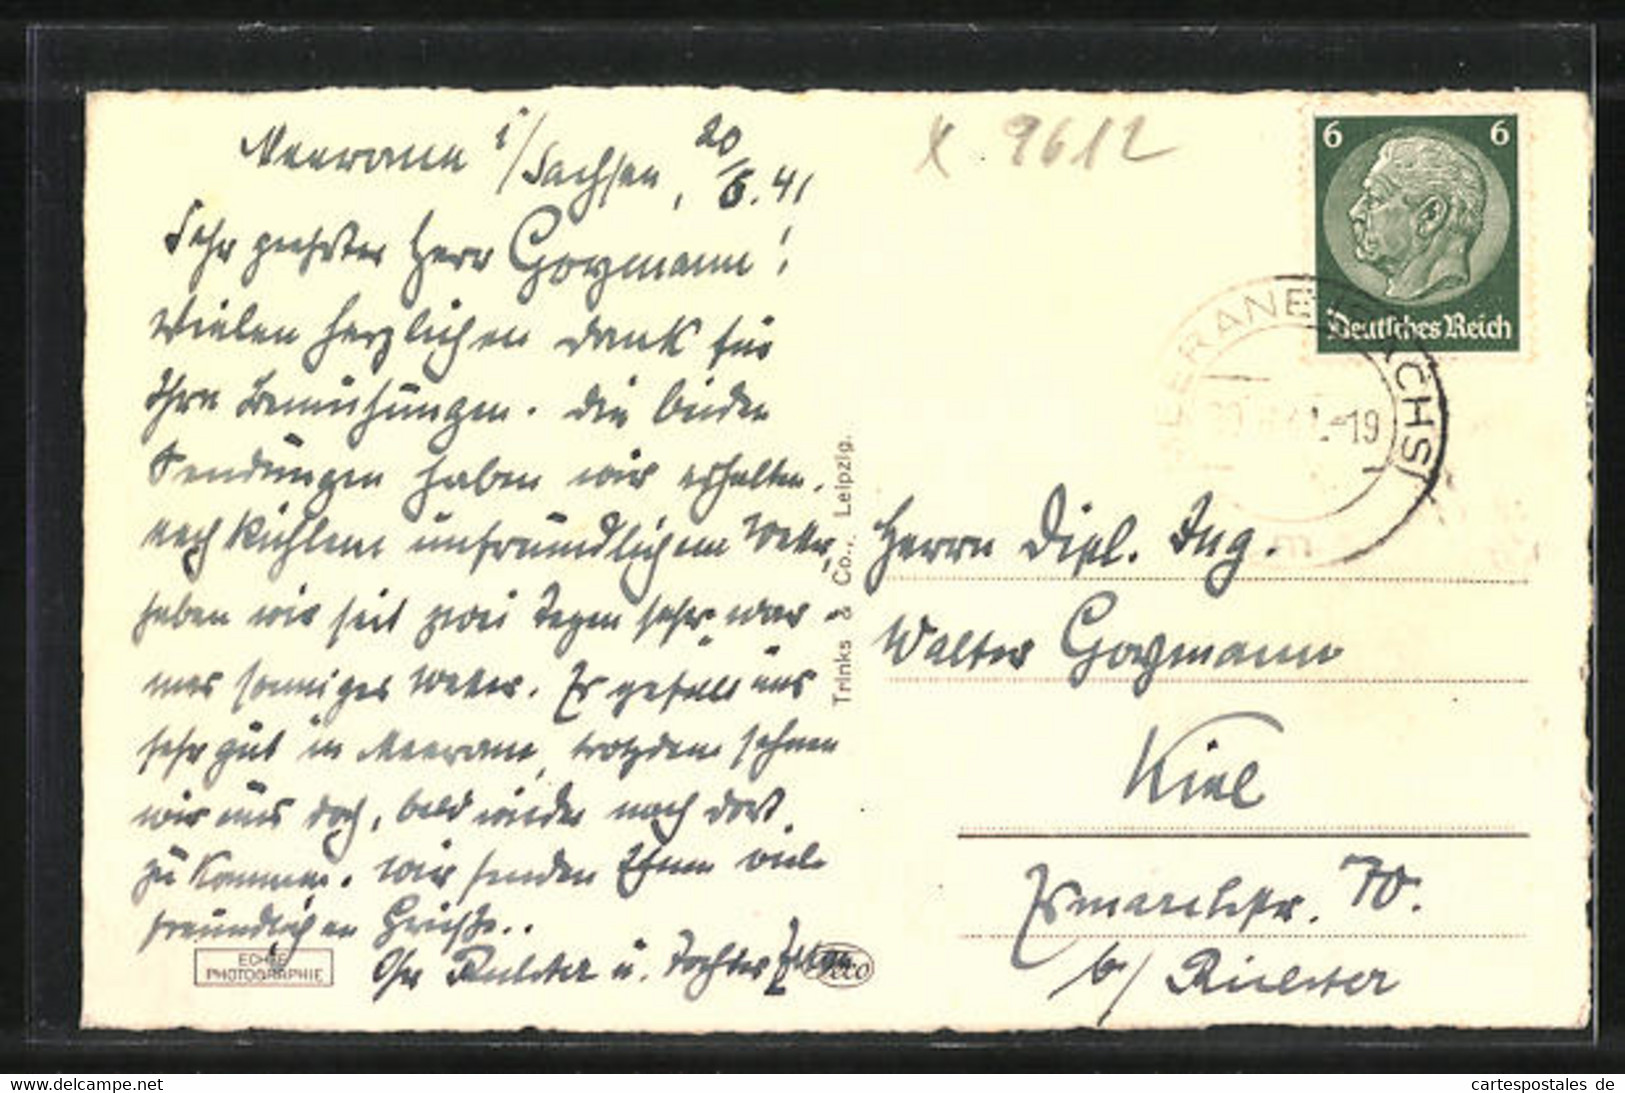 Meerane i/Sachsen, 20/6.41
Sehr geehrter Herr Goymann!
Vielen herzlichen Dank für
Ihre Bemühungen. Die beiden
Sendungen haben wir erhalten.
Nach kühlem unfreundlichem Wetter,
haben wir seit zwei Tagen sehr war-
mes sonniges Wetter. Es gefällt uns
sehr gut in Meerane, trotzdem sehnen
wir uns doch, bald wieder nach dort
zu kommen. Wir senden Ihnen viele
freundlichen Grüße..
Richter u. Tochter
ECHTE
PHOTOGRAPHIE
Trinks & Co., Leipzig.
X 9612
6 6
Deutsches Reich
MEERANE (SACHS)
-19
m
Herrn Dipl. Ing.
Walter Goymann
Kiel
Esmarchstr. 70.
b/ Richter
cartespostales de
www.delcampe.net The greatest marketplace for collectors